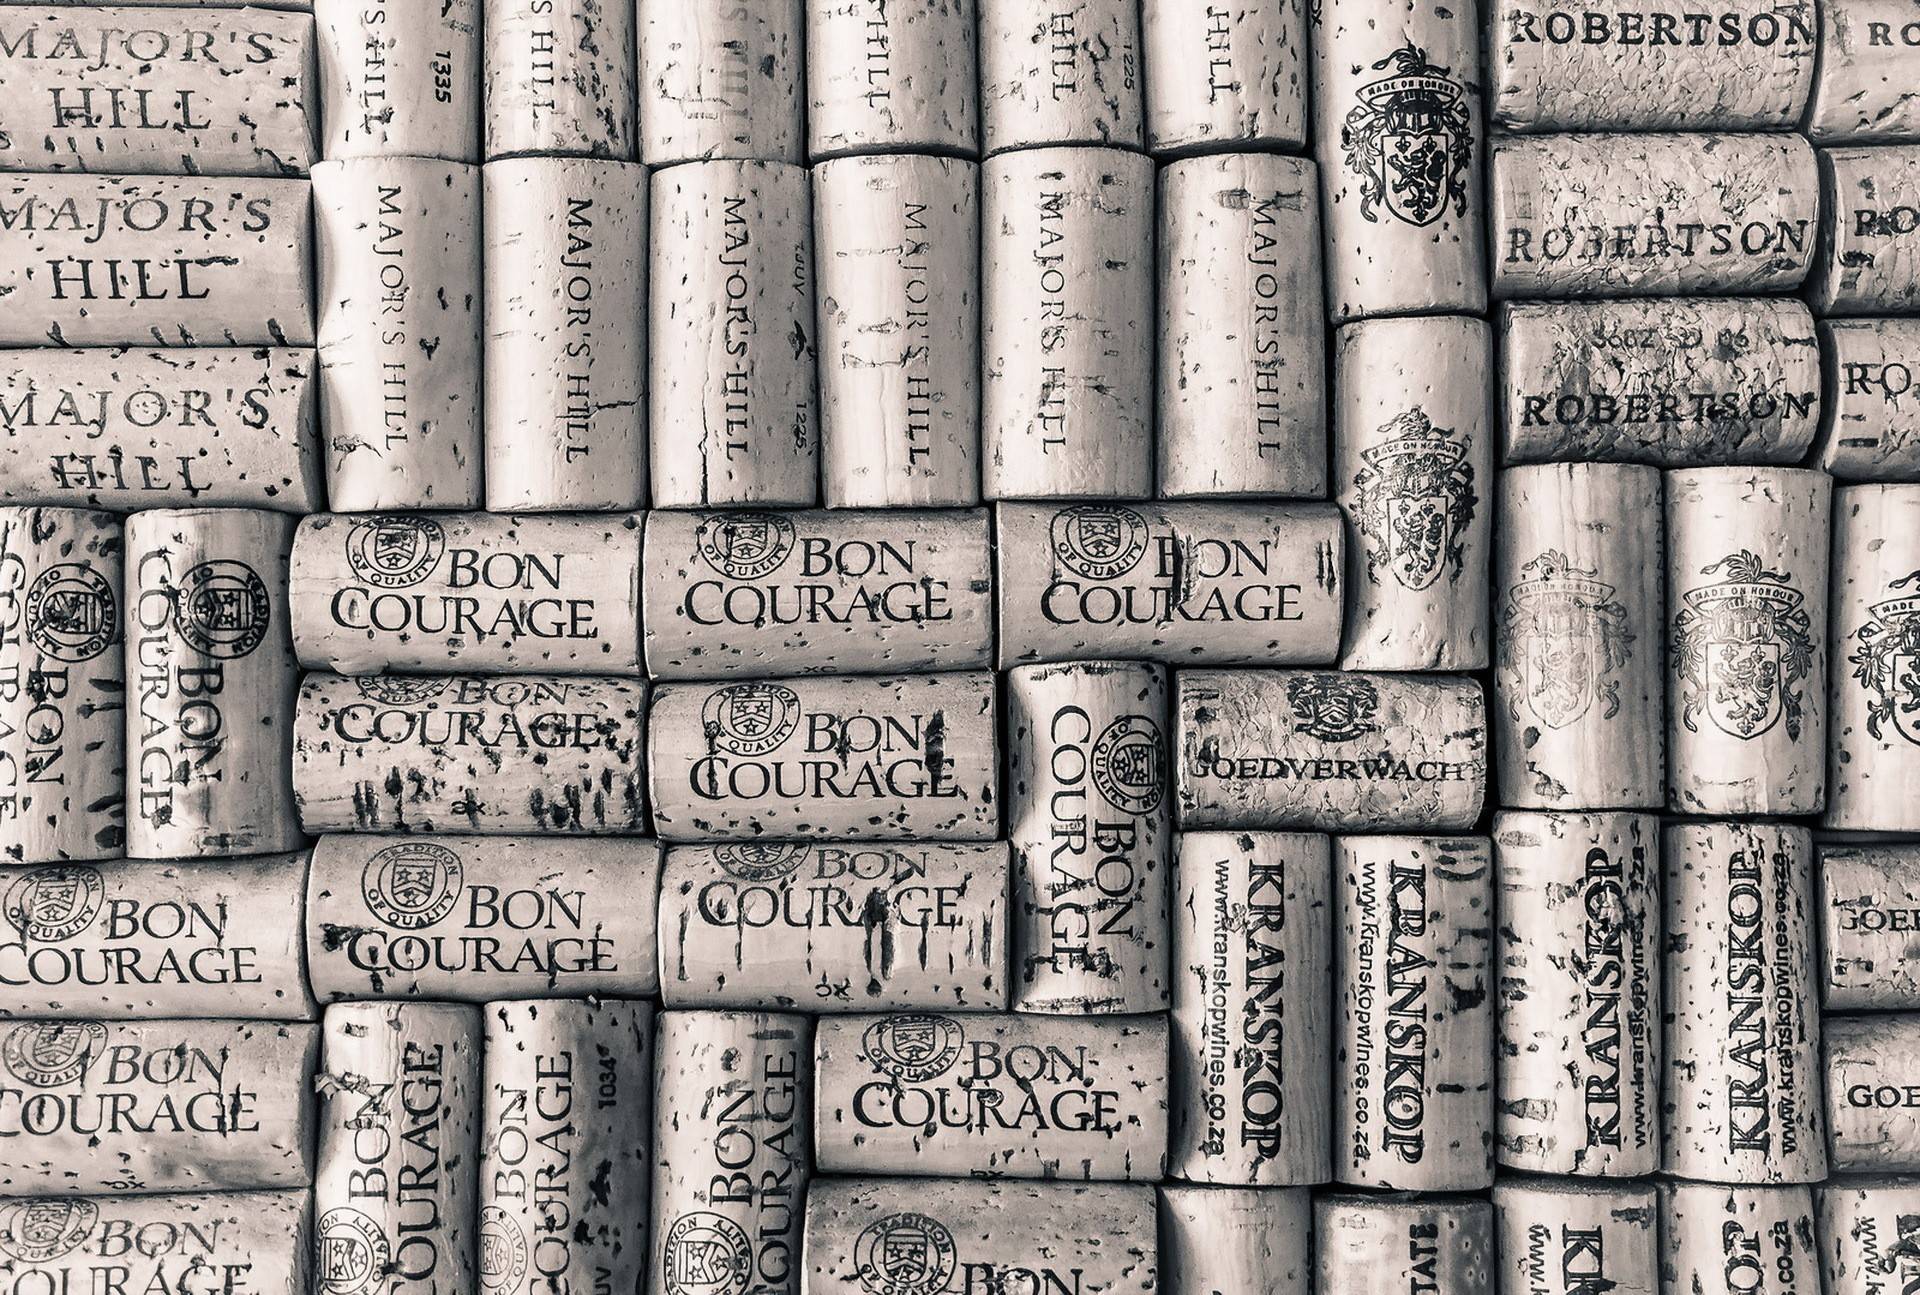 MAJOR'S
HILL
'S HILL
1335
S HILL
HILL
HILL
1225
HILL
MADE ON HONOUR
ROBERTSON
RO
MAJOR'S
HILL
MAJOR'S HILL
MAJOR'S HILL
MAJOR'S HILL
1225
MAJOR'S HILL
MAJOR'S HILL
MAJOR'S HILL
ROBERTSON
RO
MAJOR'S
HILL
MADE ON HONOUR
ROBERTSON
RO
COURAGE
BON
TRADITION
OF QUALITY
BON
COURAGE
TRADITION
OF QUALITY
BON
COURAGE
OF QUALITY
BON
COURAGE
OF QUALITY
BON
COURAGE
MADE ON HONOUR
MADE ON HONOUR
MADE
BON
COURAGE
OF QUALITY
BON
COURAGE
OF QUALITY
BON
COURAGE
GOEDVERWACH
BON
COURAGE
TRADITION
OF QUALITY
BON
COURAGE
BON
COURAGE
KRANSKOP
www.kranskopwines.co.za
KRANSKOP
www.kranskopwines.co.za
KRANSKOP
www.kranskopwines.co.za
KRANSKOP
www.kranskopwines.co.za
GOED
BON
COURAGE
BON
COURAGE
BON
COURAGE
1034
BON
COURAGE
OF QUALITY
BON
COURAGE
GOE
BON
OURAGE
TRADITION
BON
TATE
www.k
K
OP
s.co.za
www.